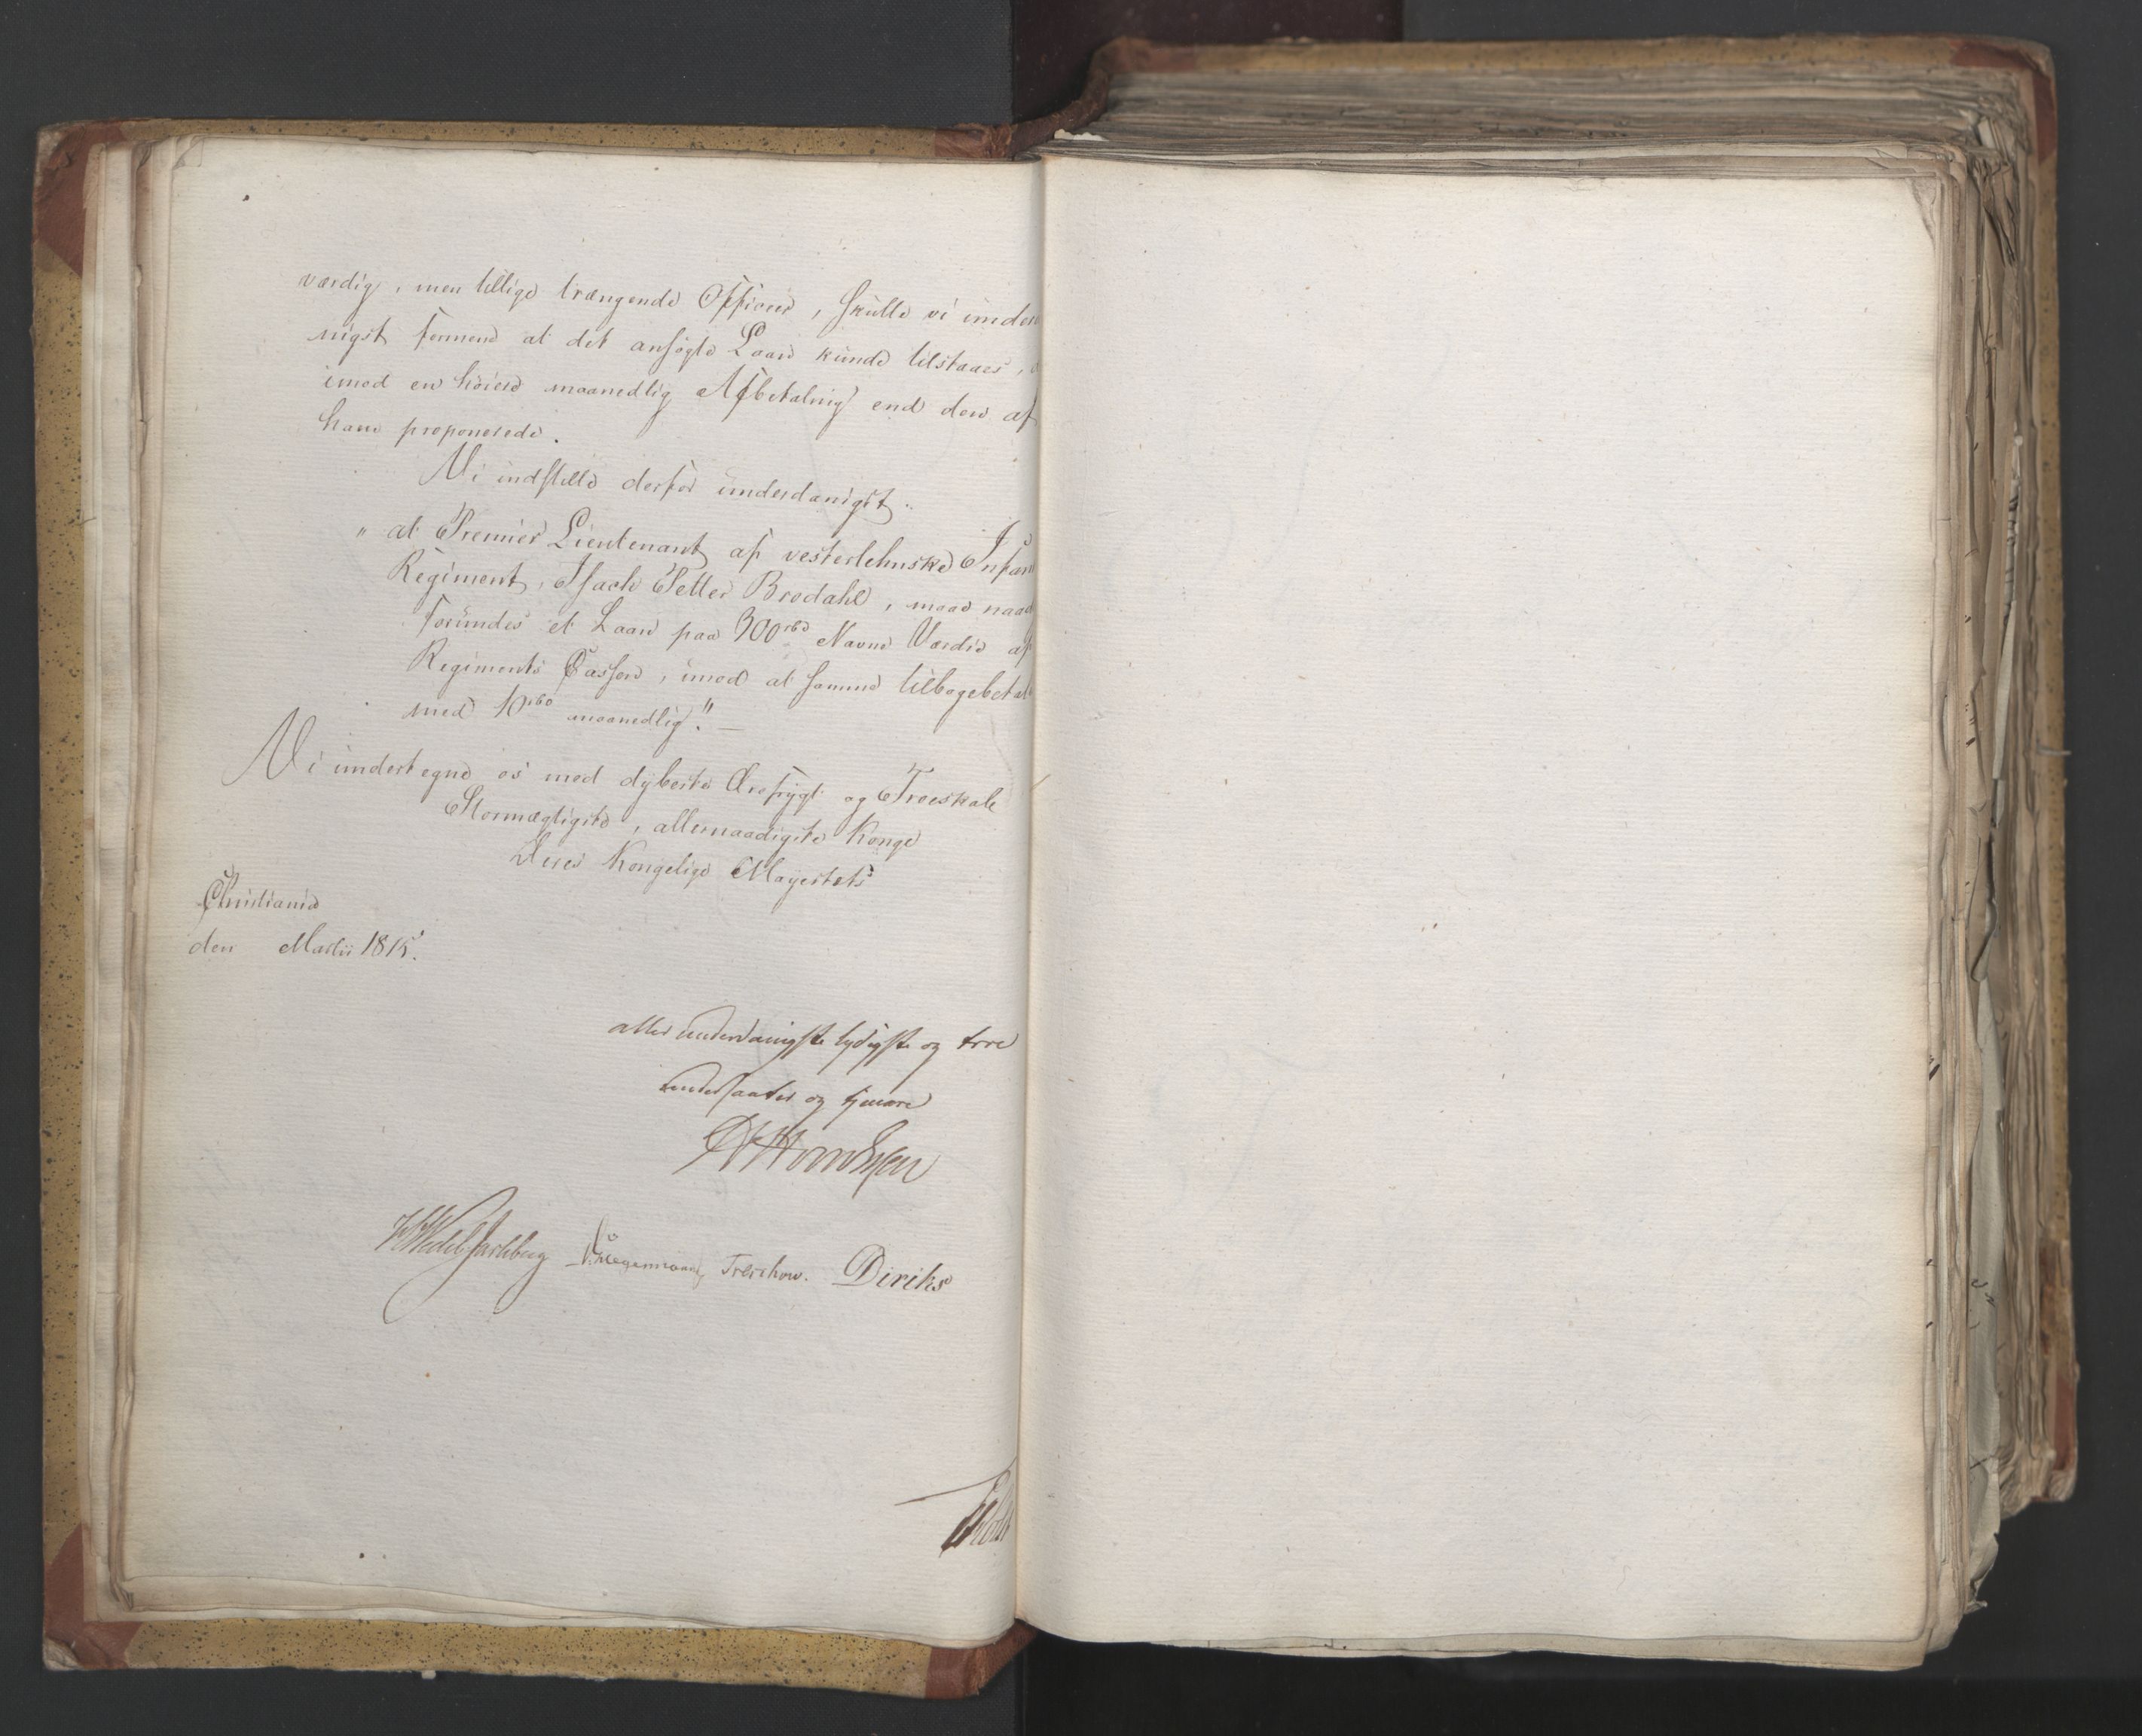 værdig, men tillige trængende Officeer, skulle vi under
nigst formene at det ansøgte Laan kunde tilstaaes,
imod en höiere maanedlig Afbetaling end den af
ham proponerede.
Vi indstille derfor underdanigst.
" at Premier Lieutenant af vesterlehnske Infan
Regiment, Isach Petter Bredahl, maae naad
forundes et Laan paa 300 rbd Navne Værdie af
Regiments Cassen, imod at samme tilbagebetal
med 10 rbd maanedlig." —
Vi undertegne os med dybeste Ærefrygt og Troeskab
Stormægtigste, allernaadigste Konge
Deres Kongelige Mayestets
Christiania
den Martii 1815.
aller underdanigste lydigste og troe
undersaatter og tjenere
WedelJarlsberg Krogennæss Treschow. Diriks